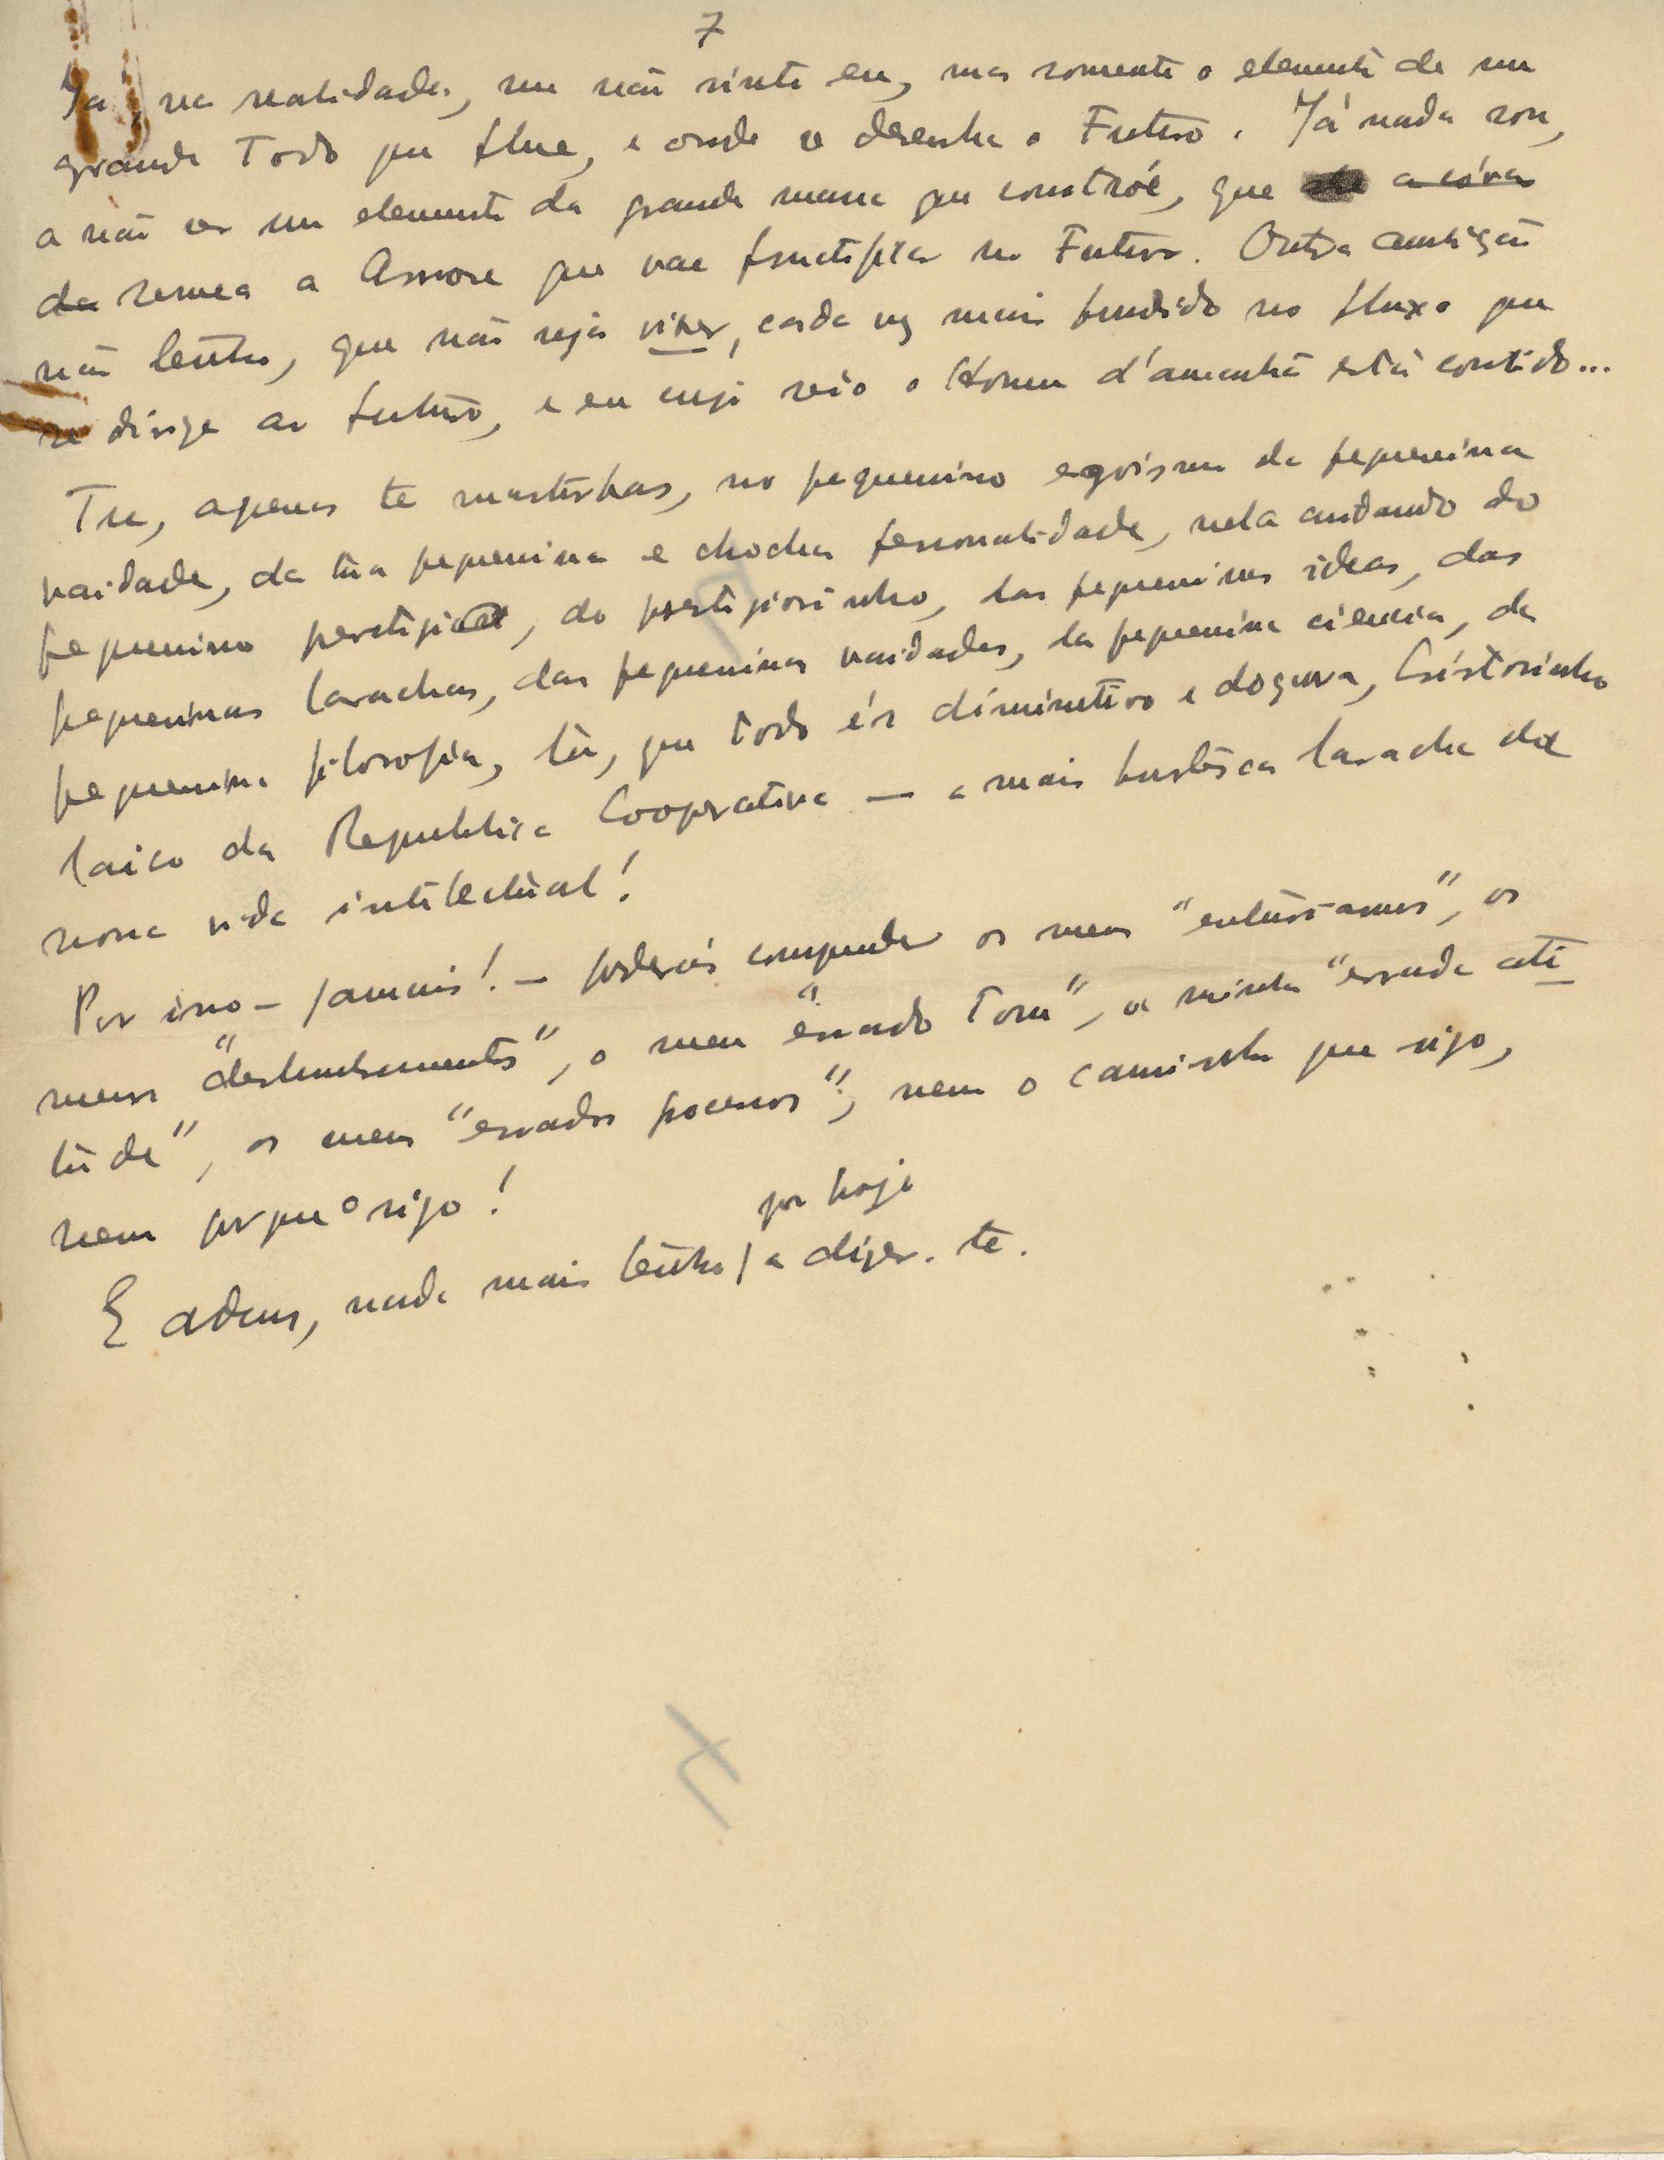 7
Já, na realidade, me não sinto eu, mas somente o elemento de um
grande Todo que flue, e onde se desenha o Futuro. Já nada sou,
a não ser um elemento da grande massa que constróe, que a côva
da semea a Arvore que vae fructificar no Futuro. Outra ambição
não tenho, que não seja viver, cada vez mais fundido no fluxo que
se dirige ao futuro, e em cujo seio o Homem d'amanhã está contido...
Tu, apenas te masturbas, no pequenino egoismo da pequenina
vaidade, da tua pequenina e chocha personalidade, nela cuidando do
pequenino prestigio, do prestigiosinho, das pequeninas ideas, das
pequeninas larachas, das pequeninas vaidades, da pequenina ciencia, da
pequenina filosofia, tu, que todo és diminutivo e dogma, Cristosinho
laico da Republica Cooperativa — a mais burlêsca laracha da
nossa vida intelectual!
Por isso – jamais! – poderás compreender os meus "entusiasmos", os
meus "deslumbramentos", o meu "errado Tom", a minha "errada ati-
tude", os meus "errados processos", nem o caminho que sigo,
nem porque o sigo!
por hoje
E adeus, nada mais tenho / a dizer-te.